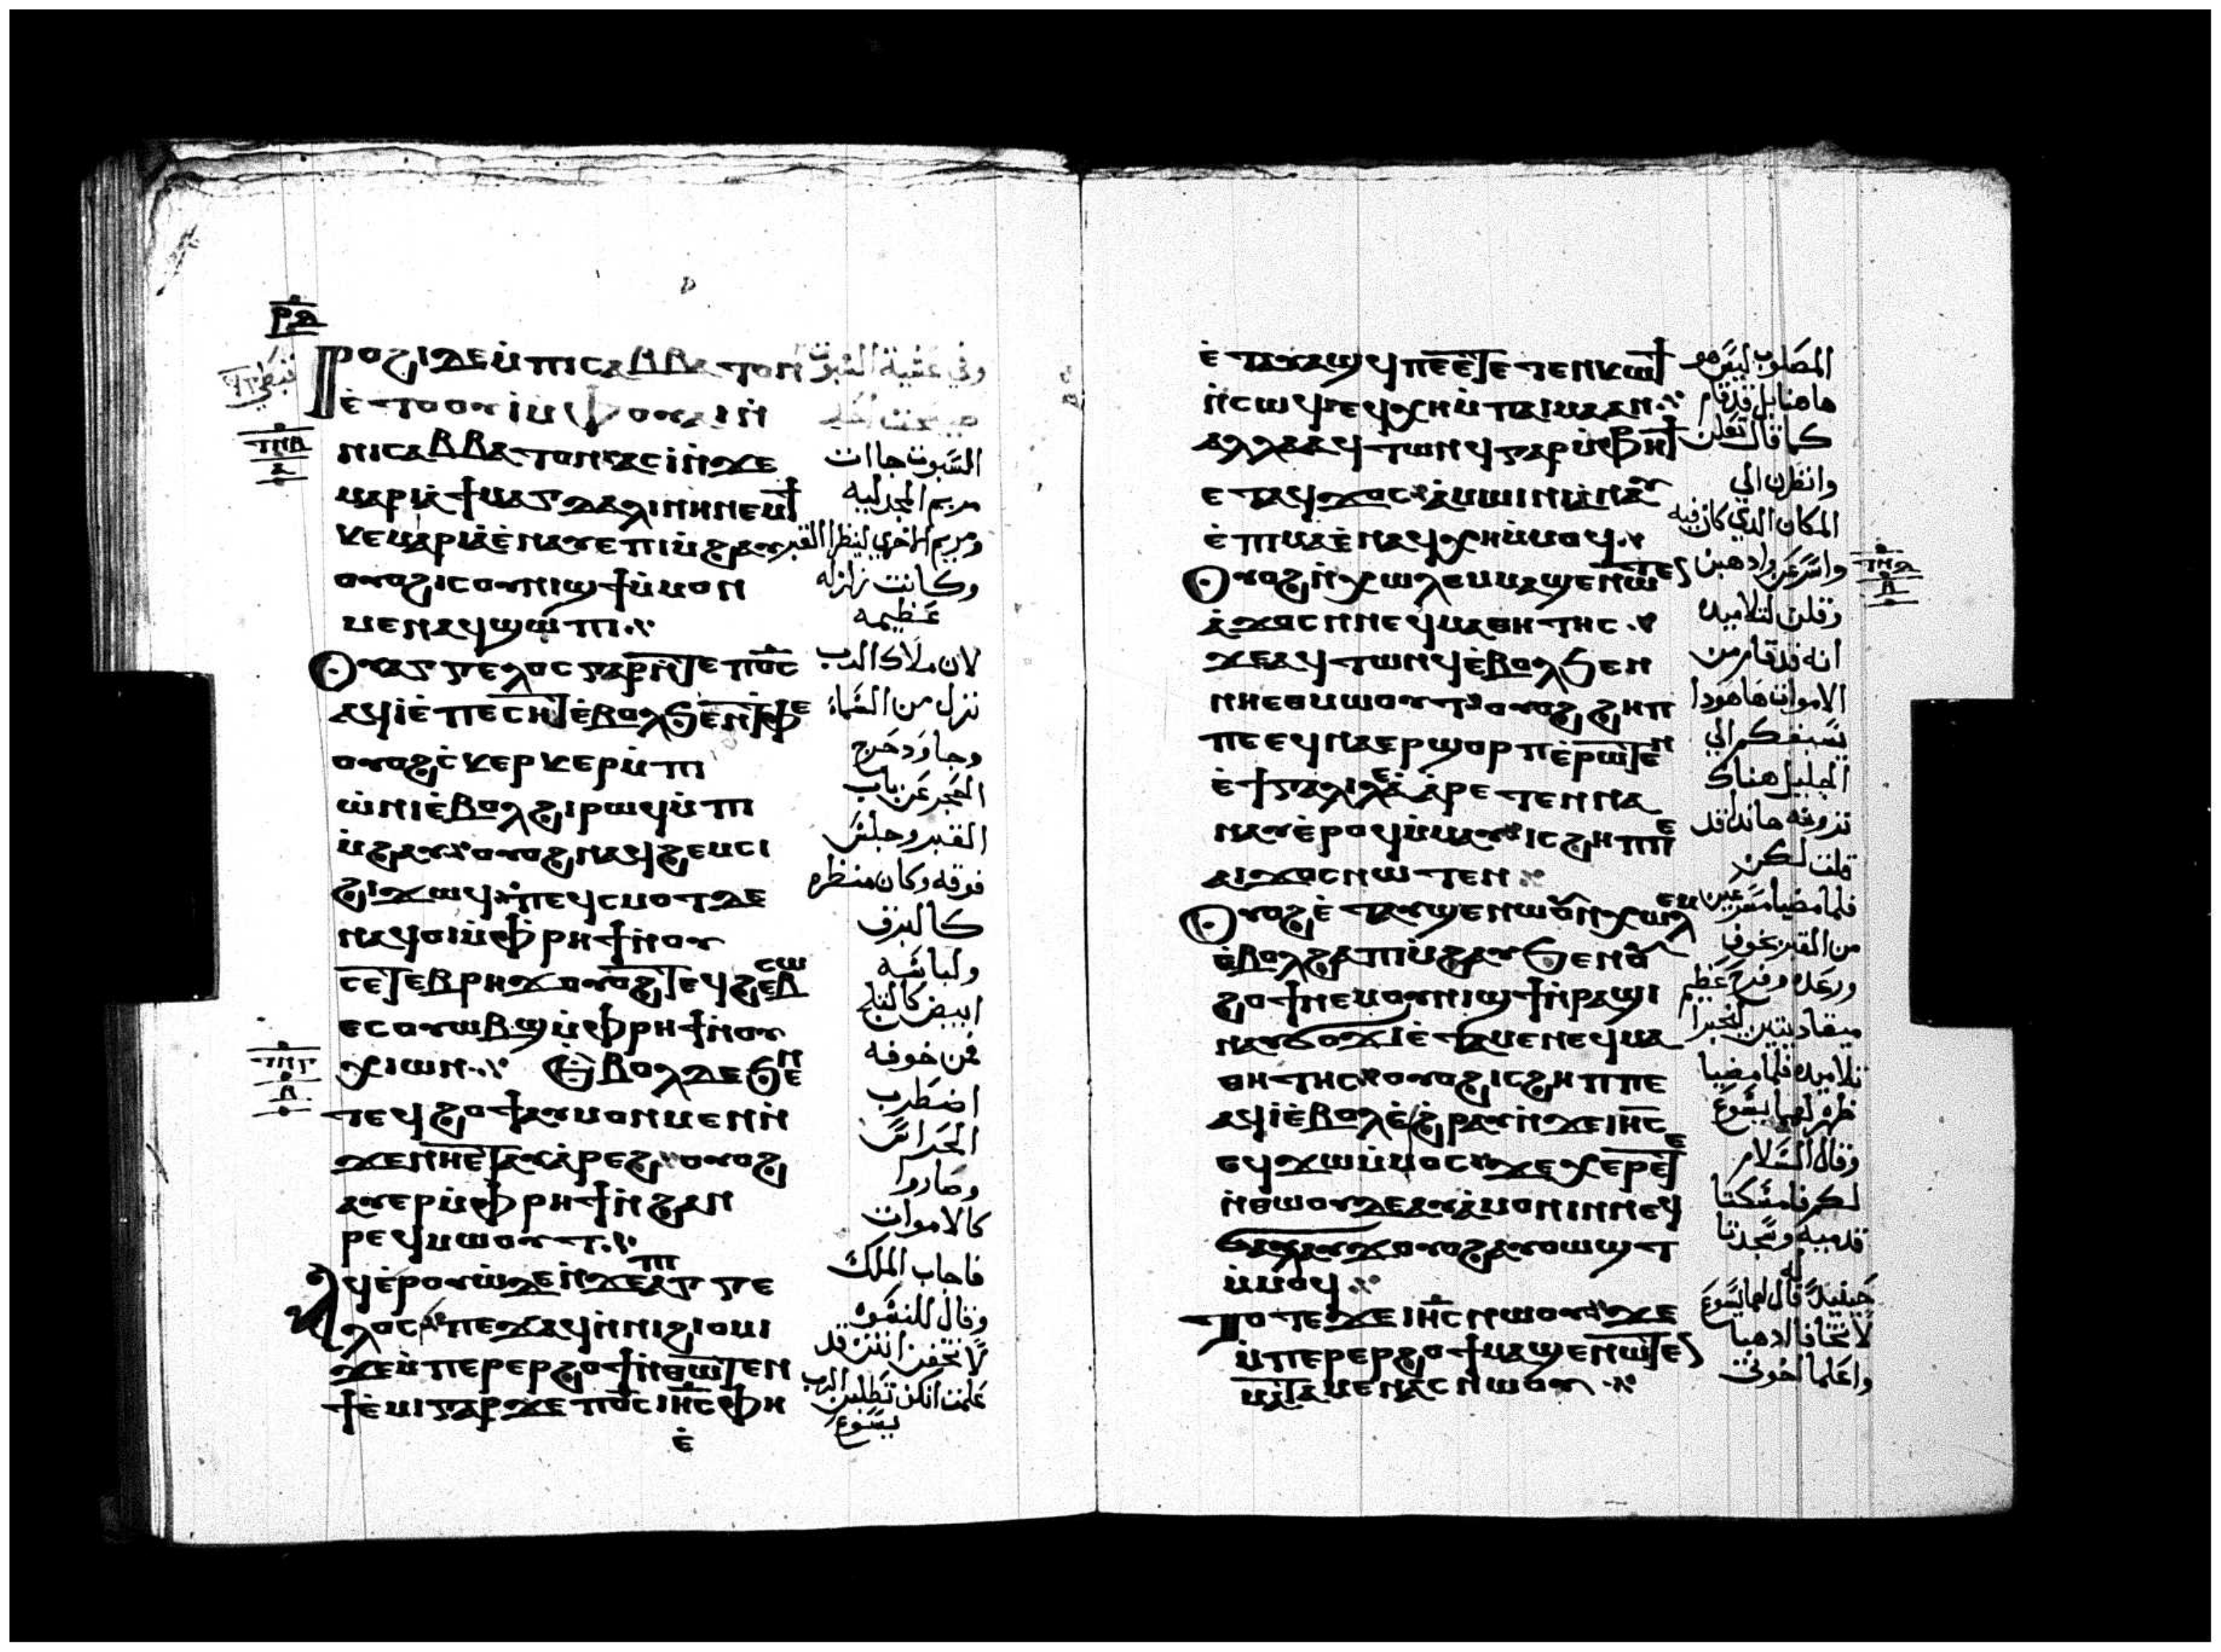 ⲣⲇ
ⲣⲟϩⲓ ⲇⲉ ⲙ̇ⲡⲓⲥⲁⲃⲃⲁⲧⲟⲛ
ⲉ̇ⲧⲟⲟⲩⲓ̇ ⲙ̇ⲫⲟⲩⲁⲓ ⲛ̇
ⲛⲓⲥⲁⲃⲃⲁⲧⲟⲛ ⲁⲥⲓ̇ ⲛ̇ϫⲉ
ⲙⲁⲣⲓⲁ̇ ϯⲙⲁⲅⲇⲁⲗⲓⲛⲏ ⲛⲉⲙ ϯ
ⲕⲉⲙⲁⲣⲓⲁ̇ ⲉ̇ⲛⲁⲩ ⲉ̇ⲡⲓⲙ̇ϩⲁⲩ
ⲟⲩⲟϩ ⲓⲥ ⲟⲩⲛⲓϣϯ ⲙ̇ⲙⲟⲛ
ⲙⲉⲛ ⲁϥϣⲱⲡⲓ
ⲟⲩⲁⲅⲅⲉⲗⲟⲥ ⲅⲁⲣ ⲛ̇ⲧⲉ ⲡⲟ̅ⲥ̅
ⲁϥⲓ̇ ⲉ̇ⲡⲉⲥⲏⲧ ⲉ̇ⲃⲟⲗ ϧⲉⲛ ⲧ̇ⲫⲉ
ⲟⲩⲟϩ ⲥ̇ⲕⲉⲣⲕⲉⲣ ⲙ̇ⲡⲓ
ⲱ̇ⲛⲓ ⲉ̇ⲃⲟⲗ ϩⲓⲣⲱϥ ⲙ̇ⲡⲓ
ⲙ̇ϩⲁⲩ ⲟⲩⲟϩ ⲛⲁϥϩⲉⲙⲥⲓ
ϩⲓϫⲱϥ ⲡⲉϥⲥⲙⲟⲧ ⲇⲉ
ⲛⲁϥⲟⲓ ⲙ̇ⲫⲣⲏϯ ⲛ̇ⲟⲩ
ⲥⲉⲧⲉⲃⲣⲏϫ ⲟⲩⲟϩ ⲧⲉϥϩⲉⲃⲥⲱ
ⲉⲥⲟⲩⲱⲃϣ ⲙ̇ⲫⲣⲏϯ ⲛ̇ⲟⲩ
ⲭⲓⲱⲛ ⲉ̇ⲃⲟⲗ ⲇⲉ ϧⲉⲛ
ⲧⲉϥϩⲟϯ ⲁⲩⲙⲟⲛⲙⲉⲛ ⲛ̇
ϫⲉ ⲛⲏⲉⲧⲁⲩⲁ̇ⲣⲉϩ ⲟⲩⲟϩ
ⲁⲩⲉⲣ ⲙ̇ⲫⲣⲏϯ ⲛ̇ϩⲁⲛ
ⲣⲉϥⲙⲱⲟⲩⲧ
ⲁϥⲉ̇ⲣⲟⲩⲱ̇ ⲇⲉ ⲛ̇ϫⲉ ⲡⲓⲁⲅⲅⲉ
ⲗⲟⲥ ⲡⲉϫⲁϥ ⲛ̇ⲛⲓϩⲓⲟⲙⲓ
ϫⲉ ⲙ̇ⲡⲉⲣⲉⲣϩⲟϯ ⲛ̇ⲑⲱⲧⲉⲛ
ϯⲉ̇ⲙⲓ ⲅⲁⲣ ϫⲉ ⲡⲟ̅ⲥ̅ ⲓⲏ̅ⲥ̅ ⲫⲏ
ⲉ̇
السبوت جاات
مريم المجدليه
ومريم الاخري لينظرا القبر
وكانت زلزله
عظيمه
لان ملاك الرب
نزل من السماء
وجا ودحرج
الحجر عن باب
القبر وجلس
فوقه وكان منظره
كالبرق
ولباسه
ابيض كالثلج
فمن خوفه
اضطرب
الحراس
وصاروا
كالاموات
فاجاب الملاك
وقال للنسوه
لا تخفن انتن قد
علمت انكن تطلبن الرب
يسوع
ⲧⲛⲃ
ⲁ
ⲧⲛⲅ
ⲉ̇ⲧⲁⲩⲁϣϥ ⲡⲉⲧⲉⲧⲉⲛⲕⲱϯ
ⲛ̇ⲥⲱϥ ϥⲭⲏ ⲙ̇ⲡⲁⲓⲙⲁ ⲁⲛ
ⲁⲗⲗⲁ ⲁϥⲧⲱⲛϥ ⲅⲁⲣ ⲙ̇ⲫⲣⲏϯ
ⲉⲧⲁϥϫⲟⲥ ⲁ̇ⲙⲱⲓⲛⲓ ⲁ̇ⲛⲁⲩ
ⲉ̇ⲡⲓⲙⲁ ⲉ̇ⲛⲁϥⲭⲏ ⲙ̇ⲙⲟϥ
ⲟⲩⲟϩ ⲛ̇ⲭⲱⲗⲉⲙ ⲙⲁϣⲉⲛⲱⲧⲉⲛ
ⲁ̇ϫⲟⲥ ⲛⲛⲉϥⲙⲁⲑⲏⲧⲏⲥ
ϫⲉ ⲁϥⲧⲱⲛϥ ⲉ̇ⲃⲟⲗ ϧⲉⲛ
ⲛⲏⲉⲑⲙⲱⲟⲩⲧ ⲟⲩⲟϩ ϩⲏⲡ
ⲡⲉ ⲉϥⲛⲁⲉⲣϣⲟⲣⲡ ⲉ̇ⲣⲱⲧⲉⲛ
ⲉ̇ϯⲅⲁⲗⲓⲗⲉⲁ̇ ⲁ̇ⲣⲉⲧⲉⲛⲛⲁ
ⲛⲁⲩ ⲉ̇ⲣⲟϥ ⲙ̇ⲙⲁⲩ ⲓⲥ ϩⲏⲡⲡⲉ
ⲁⲓϫⲟⲥ ⲛⲱⲧⲉⲛ
ⲟⲩⲟϩ ⲉ̇ⲧⲁⲩϣⲉⲛⲱⲟⲩ ⲛ̇ⲭⲱⲗⲉⲙ
ⲉ̇ⲃⲟⲗ ϩⲁ ⲡⲓⲙ̇ϩⲁⲩ ϧⲉⲛ ⲟⲩ
ϩⲟϯ ⲛⲉⲙ ⲟⲩⲛⲓϣϯ ⲛ̇ⲣⲁϣⲓ
ⲛⲁⲩϭⲟϫⲓ ⲉ̇ⲧⲁⲙⲉ ⲛⲉϥⲙⲁ
ⲑⲏⲧⲏⲥ ⲟⲩⲟϩ ⲓⲥ ϩⲏⲡⲡⲉ
ⲁϥⲓ̇ ⲉ̇ⲃⲟⲗ ⲉ̇ϩⲣⲁⲩ ⲛ̇ϫⲉ ⲓⲏ̅ⲥ̅
ⲉϥϫⲱ ⲙ̇ⲙⲟⲥ ϫⲉ ⲭⲉⲣⲉⲧⲉ
ⲛ̇ⲑⲱⲟⲩ ⲇⲉ ⲁⲩⲁ̇ⲙⲟⲛⲓ ⲛⲛⲉϥ
ϭⲁⲗⲁⲩϫ ⲟⲩⲟϩ ⲁⲩⲟⲩⲱϣⲧ
ⲙ̇ⲙⲟϥ
ⲧⲟⲧⲉ ⲡⲉϫⲉ ⲓⲏ̅ⲥ̅ ⲛⲱⲟⲩ ϫⲉ
ⲙ̇ⲡⲉⲣⲉⲣϩⲟϯ ⲙⲁϣⲉⲛⲱⲧⲉⲛ
ⲙⲁⲧⲁⲙⲉ ⲛⲁⲥⲛⲏⲟⲩ
المصلوب ليس هو
هاهنا بل قد قام
كما قال تعلن
وانظرن الي
المكان الذي كان فيه
واسرعن واذهبن
وقلن لتلاميذه
انه قد قام من
الاموات هاهوذا
يسبقكم الي
الجليل هناك
ترونه هانذا قد
قلت لكن
فلما مضيا مسرعين
من القبر بخوف
ورعده وفرح عظيم
تلاميذه فلما مضيا
ظهر لهما يسوع
وقال السلام
لكم فامسكتا
قدميه وسجدتا
له
حينيذ قال لهما يسوع
لا تخافا اذهبا
واعلما اخوتي
ⲧⲛⲇ